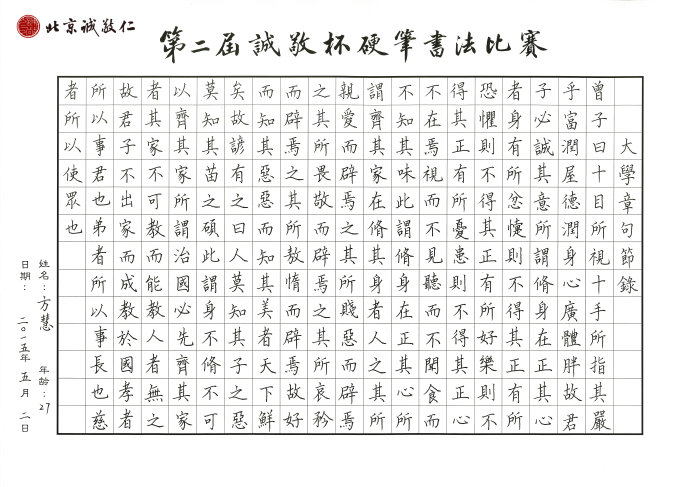 北京誠敬仁
第二屆誠敬杯硬筆書法比賽
大學章句節錄
曾子曰十目所視十手所指其嚴
乎富潤屋德潤身心廣體胖故君
子必誠其意所謂脩身在正其心
者身有所忿懥則不得其正有所
恐懼則不得其正有所好樂則不
得其正有所憂患則不得其正心
不在焉視而不見聽而不聞食而
不知其味此謂脩身在正其心所
謂齊其家在脩其身者人之其所
親愛而辟焉之其所賤惡而辟焉
之其所畏敬而辟焉之其所哀矜
而辟焉之其所敖惰而辟焉故好
而知其惡惡而知其美者天下鮮
矣故諺有之曰人莫知其子之惡
莫知其苗之碩此謂身不脩不可
以齊其家所謂治國必先齊其家
者其家不可教而能教人者無之
故君子不出家而成教於國孝者
所以事君也弟者所以事長也慈
者所以使眾也
姓名：方慧 年齡：27
日期：二〇一五年五月二日